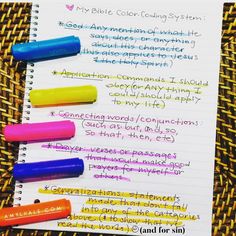 My Bible Color Coding System:
* God: Any mention of what He
says, does, or anything
about His character
(this also applies to Jesus
& the Holy Spirit)
* Application: Commands I should
obey (or ANY thing I
could/should apply
to my life)
* Connecting words/conjunctions:
(such as but, and, so,
so that, then, etc)
* Prayer: verses or passages
that would make good
prayers for myself or
others.
* Generalizations: statements
made that don't fall
into any of the categories
above (to show that I've
read the words) (and for sin)
AMYLHALE.COM